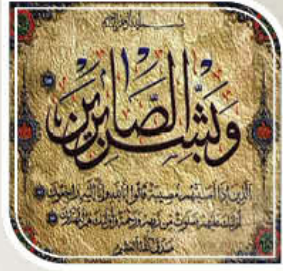 بسم الله الرحمن الرحيم
وَبَشِّرِ الصَّابِرِينَ
الذين إذا أصابتهم مصيبة قالوا إنا لله وإنا إليه راجعون
أولئك عليهم صلوات من ربهم ورحمة وأولئك هم المهتدون
صدق الله العظيم